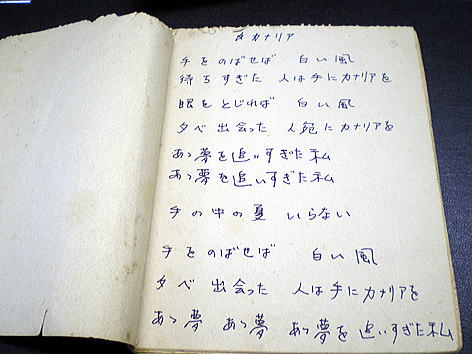 カナリア
手をのばせば 白い風
待ちすぎた 人は手にカナリアを
眼をとじれば 白い風
夕べ出会った 人宛にカナリアを
あゝ夢を追いすぎた私
あゝ夢を追いすぎた私
手の中の夏 いらない
手をのばせば 白い風
夕べ出会った 人は手にカナリアを
あゝ夢 あゝ夢 あゝ夢を追いすぎた私